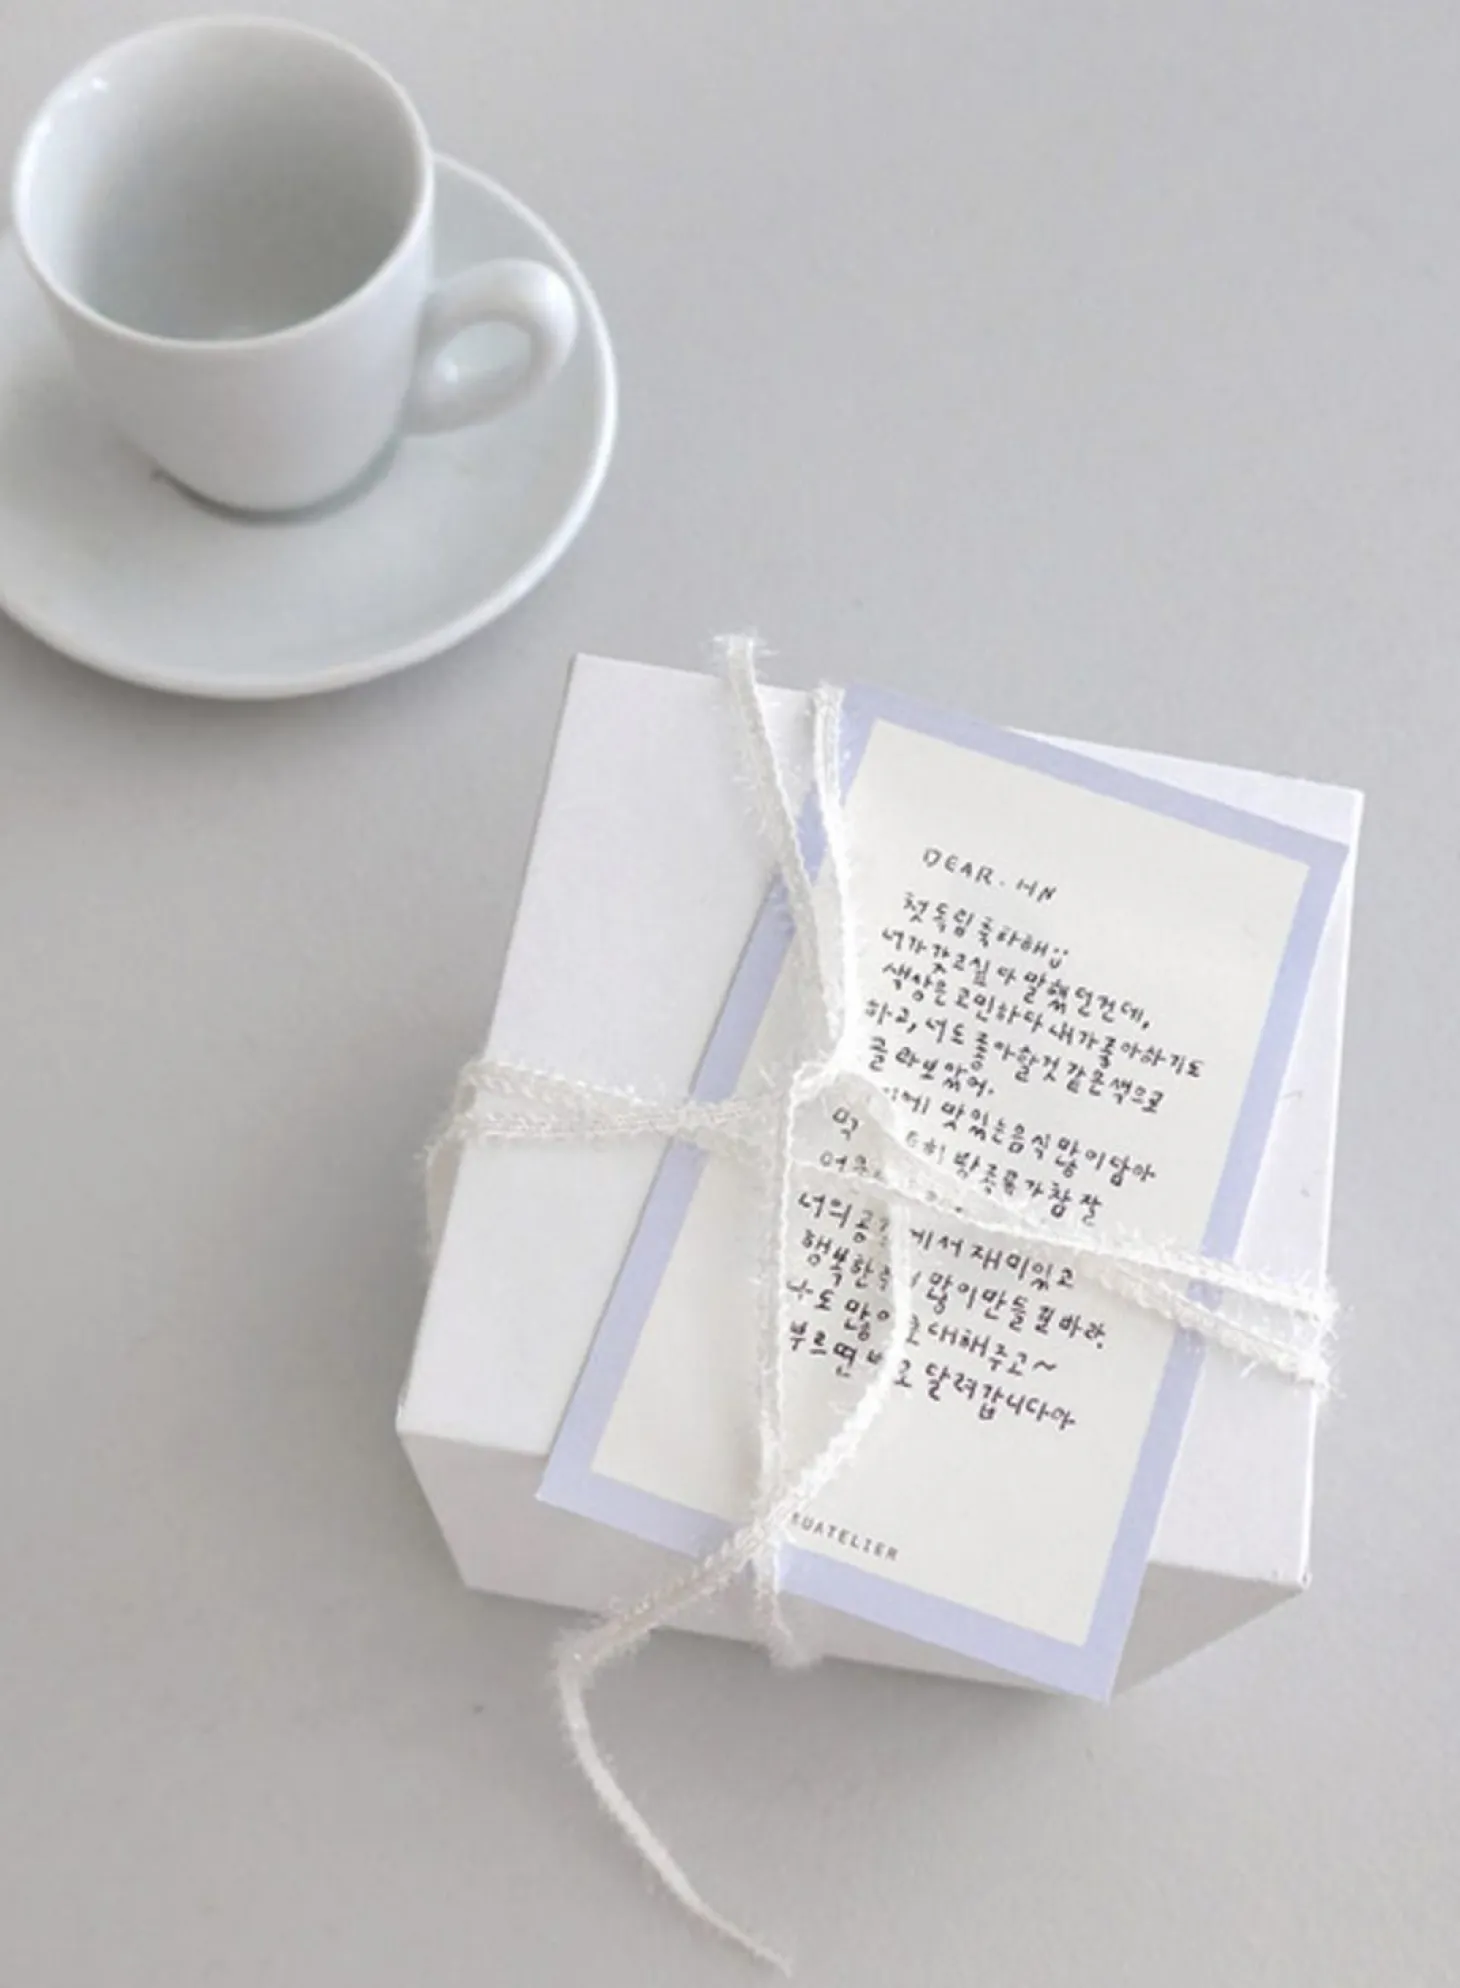 DEAR. HN
첫 독립 축하해
너가 갖고싶다 말했던건데,
색상은 고민하다 내가 좋아하기도
하고, 너도 좋아할것 같은색으로
골라보았어.
맛있는음식 많이담아
먹
가 참 잘
너의 에서 재미있고
행복한 많이만들길바라.
나도 많이 초대해주고~
부르면 바로 달려갑니다아
SUATELIER